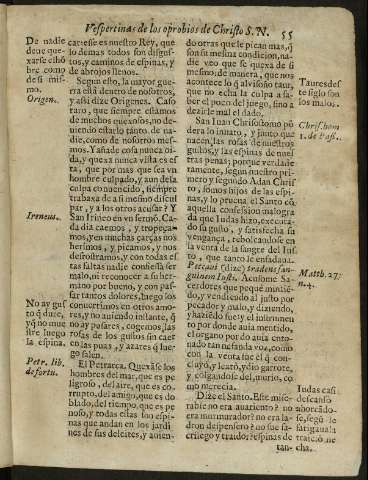 Vespertinas de los oprobios de Christo S. N. 55
De nadie
deue que-
xarse el hõ
bre como
de si mis-
mo.
Origen.
Ireneus.
No ay gus
to q̃ dure,
y q̃ no mue
stre luego
la espina.
Petr. lib.
de fortu.
carse este es nuestro Rey, que
lo demas todos sin disgus-
tos, y caminos de espinas, y
de abrojos llenos.
Segun esto, la mayor guerra
está dentro de nosotros,
y assi dize Origenes. Caso
raro, que siempre estamos
de muchos quexosos, no de-
uiendo estarlo tanto de na-
die, como de nosotro mes-
mos. Y añade cosa nunca oi-
da, y quexa nunca vista es es
ta, que por mas que sea vn
hombre culpado, y aun de su
culpa conuencido, siempre
trabaxa de a si mesmo discul
par, y a los otros acusar? Y
San Irineo en vn sermõ. Ca-
da dia caemos, y tropeça-
mos, y en muchas cargas nos
herimos, y picamos, y nos
desostramos, y con todas es
tas faltas nadie confiessa ser
malo, ni reconocer a su her-
mano por bueno, y con pas-
sar tantos dolores, luego los
conuertimos en otros amo-
res, y no auiendo instante, q̃
no ay pesares, cogemos, las
rosas de los gustos sin caer
en las puas, y azares q̃ lue-
go salen.
El Petrarca. Quexase los
hombres del mar, que es pe
ligroso, del aire, que es co-
rrupto, del amigo, que es do
blado, del tiempo, que es pe
noso, y todas estas son espi-
nas que andan en los jardi
nes de sus deleites, y auien-
do otras que le pican mas, q̃
son su mesma condicion, na-
die veo que se quexa de si
mesmo, de manera, que nos
acontece lo q̃ al visoño taur,
que no echa la culpa a sa-
ber el poco del juego, sino a
dezirle mal el dado.
San Iuan Chrisostomo põ
dera lo innato, y junto que
nacen, las rosas de nuestros
gustos, y las espinas de nues
tras penas; porque verdade
ramente, segun nuestro pri-
mero y segundo Adan Chris
to, somos hijos de las espi-
nas, y lo prueua el Santo cõ
aquella confession malogra
da que Iudas hizo, executã-
do su gusto, y satisfecha su
vengança, rebolcandose en
la venta de la sangre del Ius
to, que tanto le ensadaua.
Peccaui (dize) tradens san-
guinem Iusti. Acusome Sa-
cerdotes que pequé mintiẽ-
do, y vendiendo al justo por
pecador y malo, y diziendo,
y haziẽdo fuese y el infrunnen
por donde auia mentido,
el organo por do auia ento-
nado tan nefanda voz, como
con la venta fue el q̃ con-
cluyó, y leató, y dio garrote,
y colgandose del, murio, co
mo merecia.
Dize el Santo. Este mise-
rable no era auariento? no
era murmurador? no era la-
dron despensero? no fue sa-
crilego y traidor? espinas de
tan-
Taures des
te siglo son
los malos.
Chris. hom
1.
Matth. 27.
n. 4.
Iudas casi
descansò
ahorcãdo-
se, segũ le
fatigaua la
traicio he
cha.